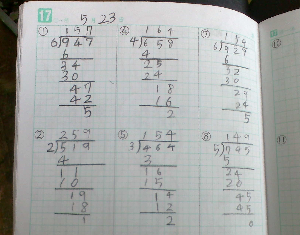 17 5 23
① 157
6)947
6
34
30
47
42
5
④ 164
4)658
4
25
24
18
16
2
⑦ 154
6)929
6
32
30
29
24
5
② 259
2)519
4
11
10
19
18
1
⑤ 154
3)464
3
16
15
14
12
2
⑧ 149
5)745
5
24
20
45
45
0